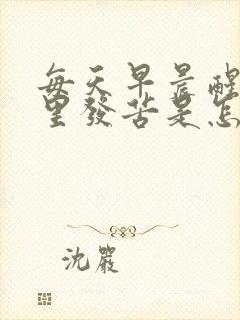 每天早晨醒
里發苦是怎
沈嚴